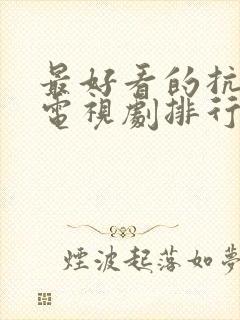 最好看的抗
電視劇排行
煙波起落如夢